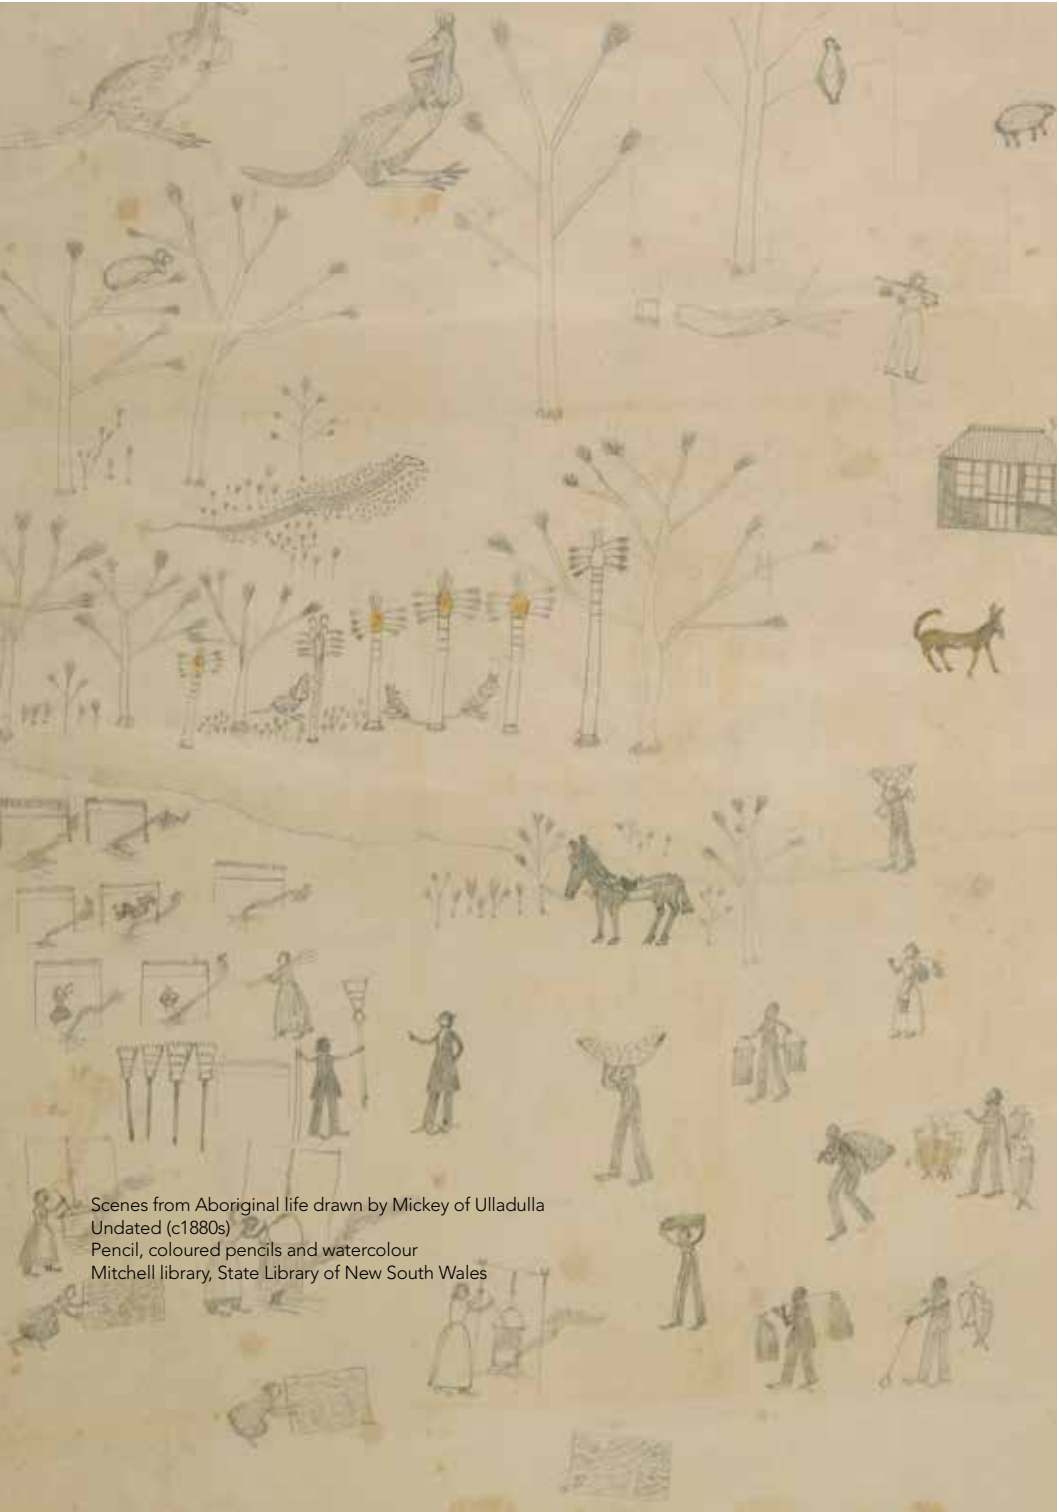 Scenes from Aboriginal life drawn by Mickey of Ulladulla
Undated (c1880s)
Pencil, coloured pencils and watercolour
Mitchell library, State Library of New South Wales